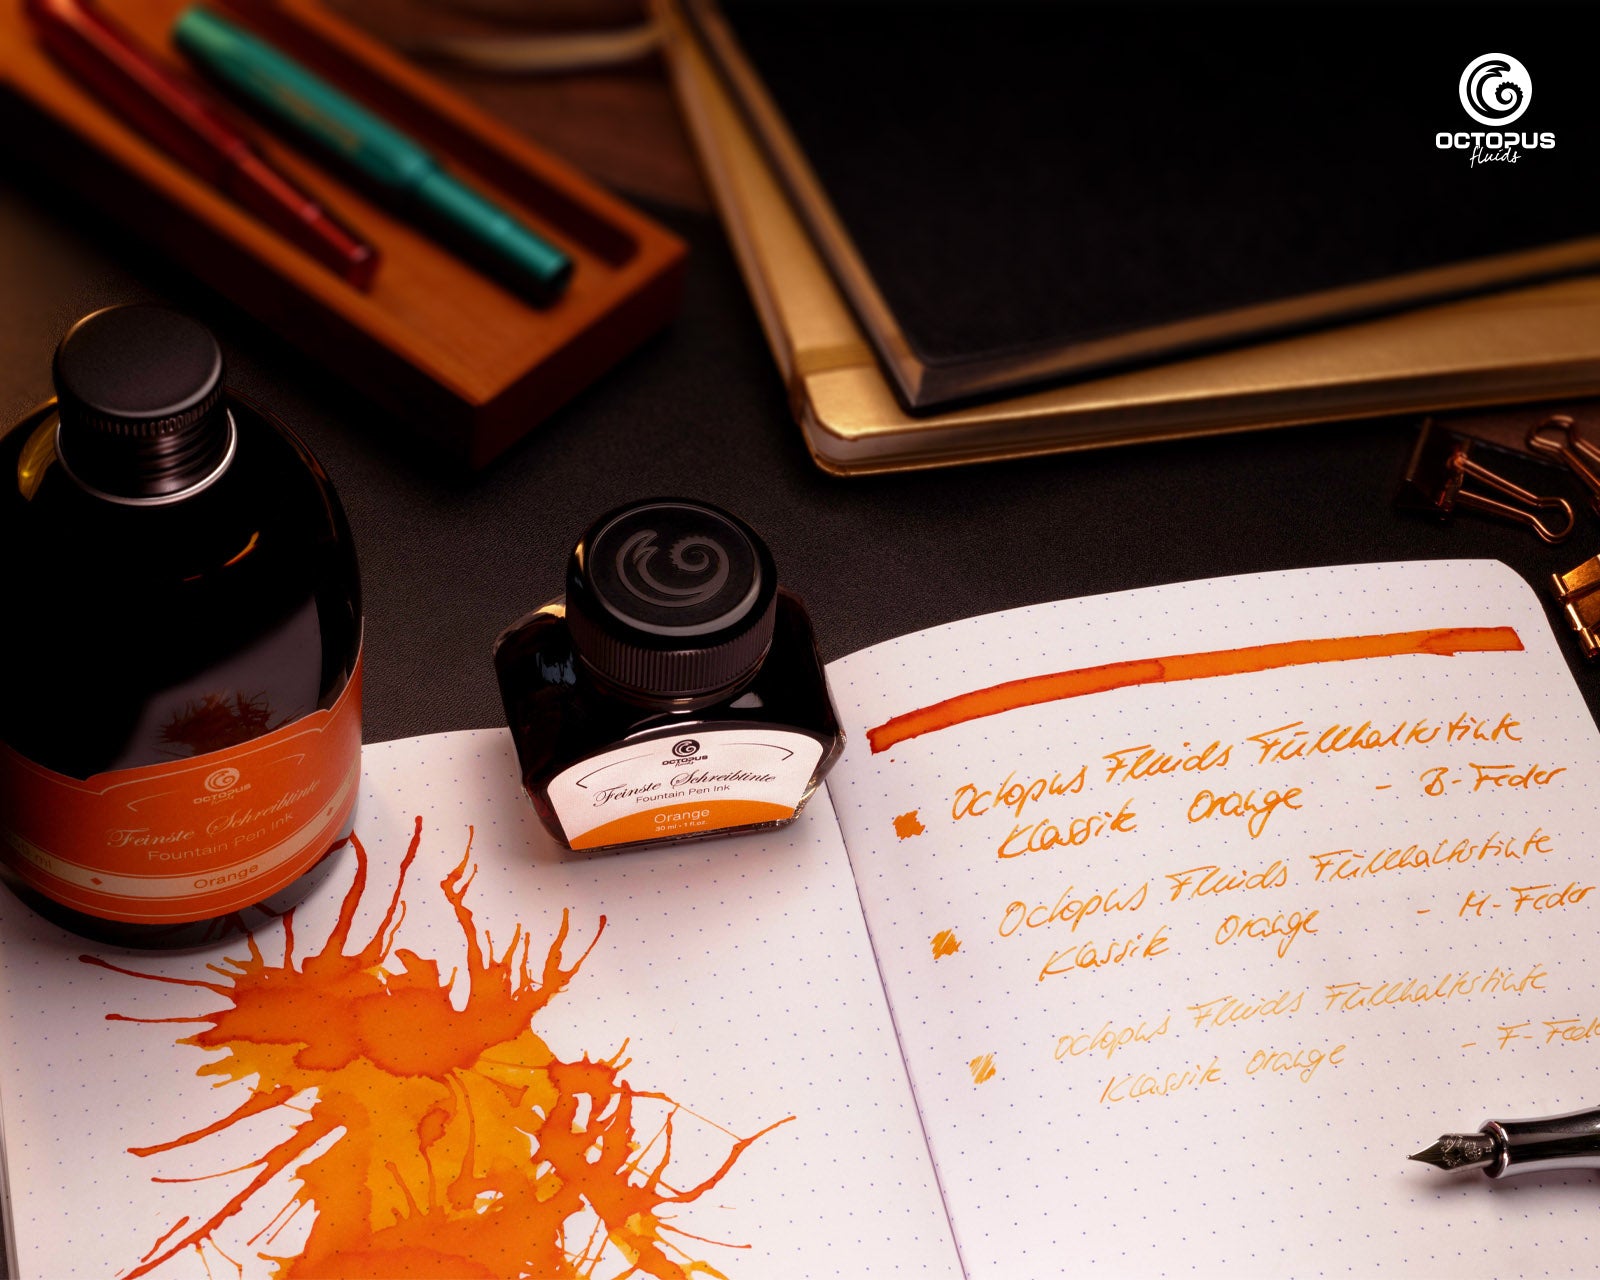 OCTOPUS
fluids
OCTOPUS
fluids
Feinste Schreibtinte
Fountain Pen Ink
Orange
OCTOPUS
fluids
Feinste Schreibtinte
Fountain Pen Ink
Orange
30 ml • 1 fl.oz.
Octopus Fluids Füllhaltertinte
Klassik Orange - B-Feder
Octopus Fluids Füllhaltertinte
Klassik Orange - M-Feder
Octopus Fluids Füllhaltertinte
Klassik Orange - F-Feder